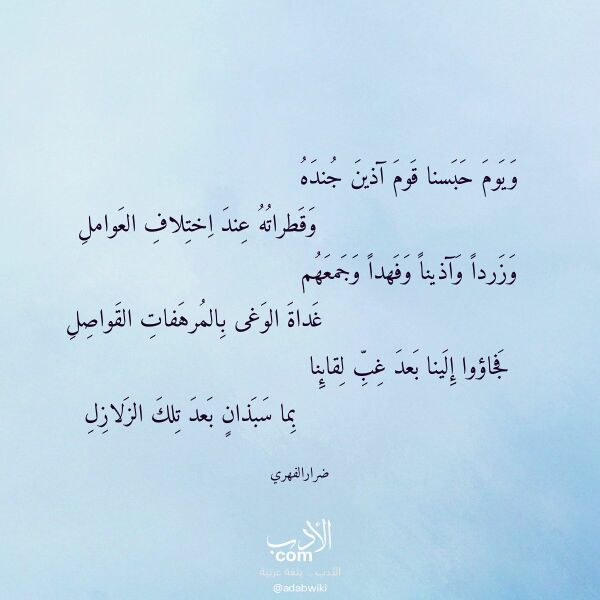 وَيَومَ حَبَسنا قَومَ آذينَ جُندَهُ
وَقَطراتُهُ عِندَ اِختِلافِ العَواملِ
وَزَرداً وَآذيناً وَفَهداً وَجَمعَهُم
غَداةَ الوَغى بِالمُرهَفاتِ القَواصِلِ
فَجاؤوا إِلَينا بَعدَ غِبِّ لِقائِنا
بِما سَبَذانٍ بَعدَ تِلكَ الزَلازِلِ
ضرارالفهري
الأدب
com
الأدب .. بلغة عربية
@adabwiki